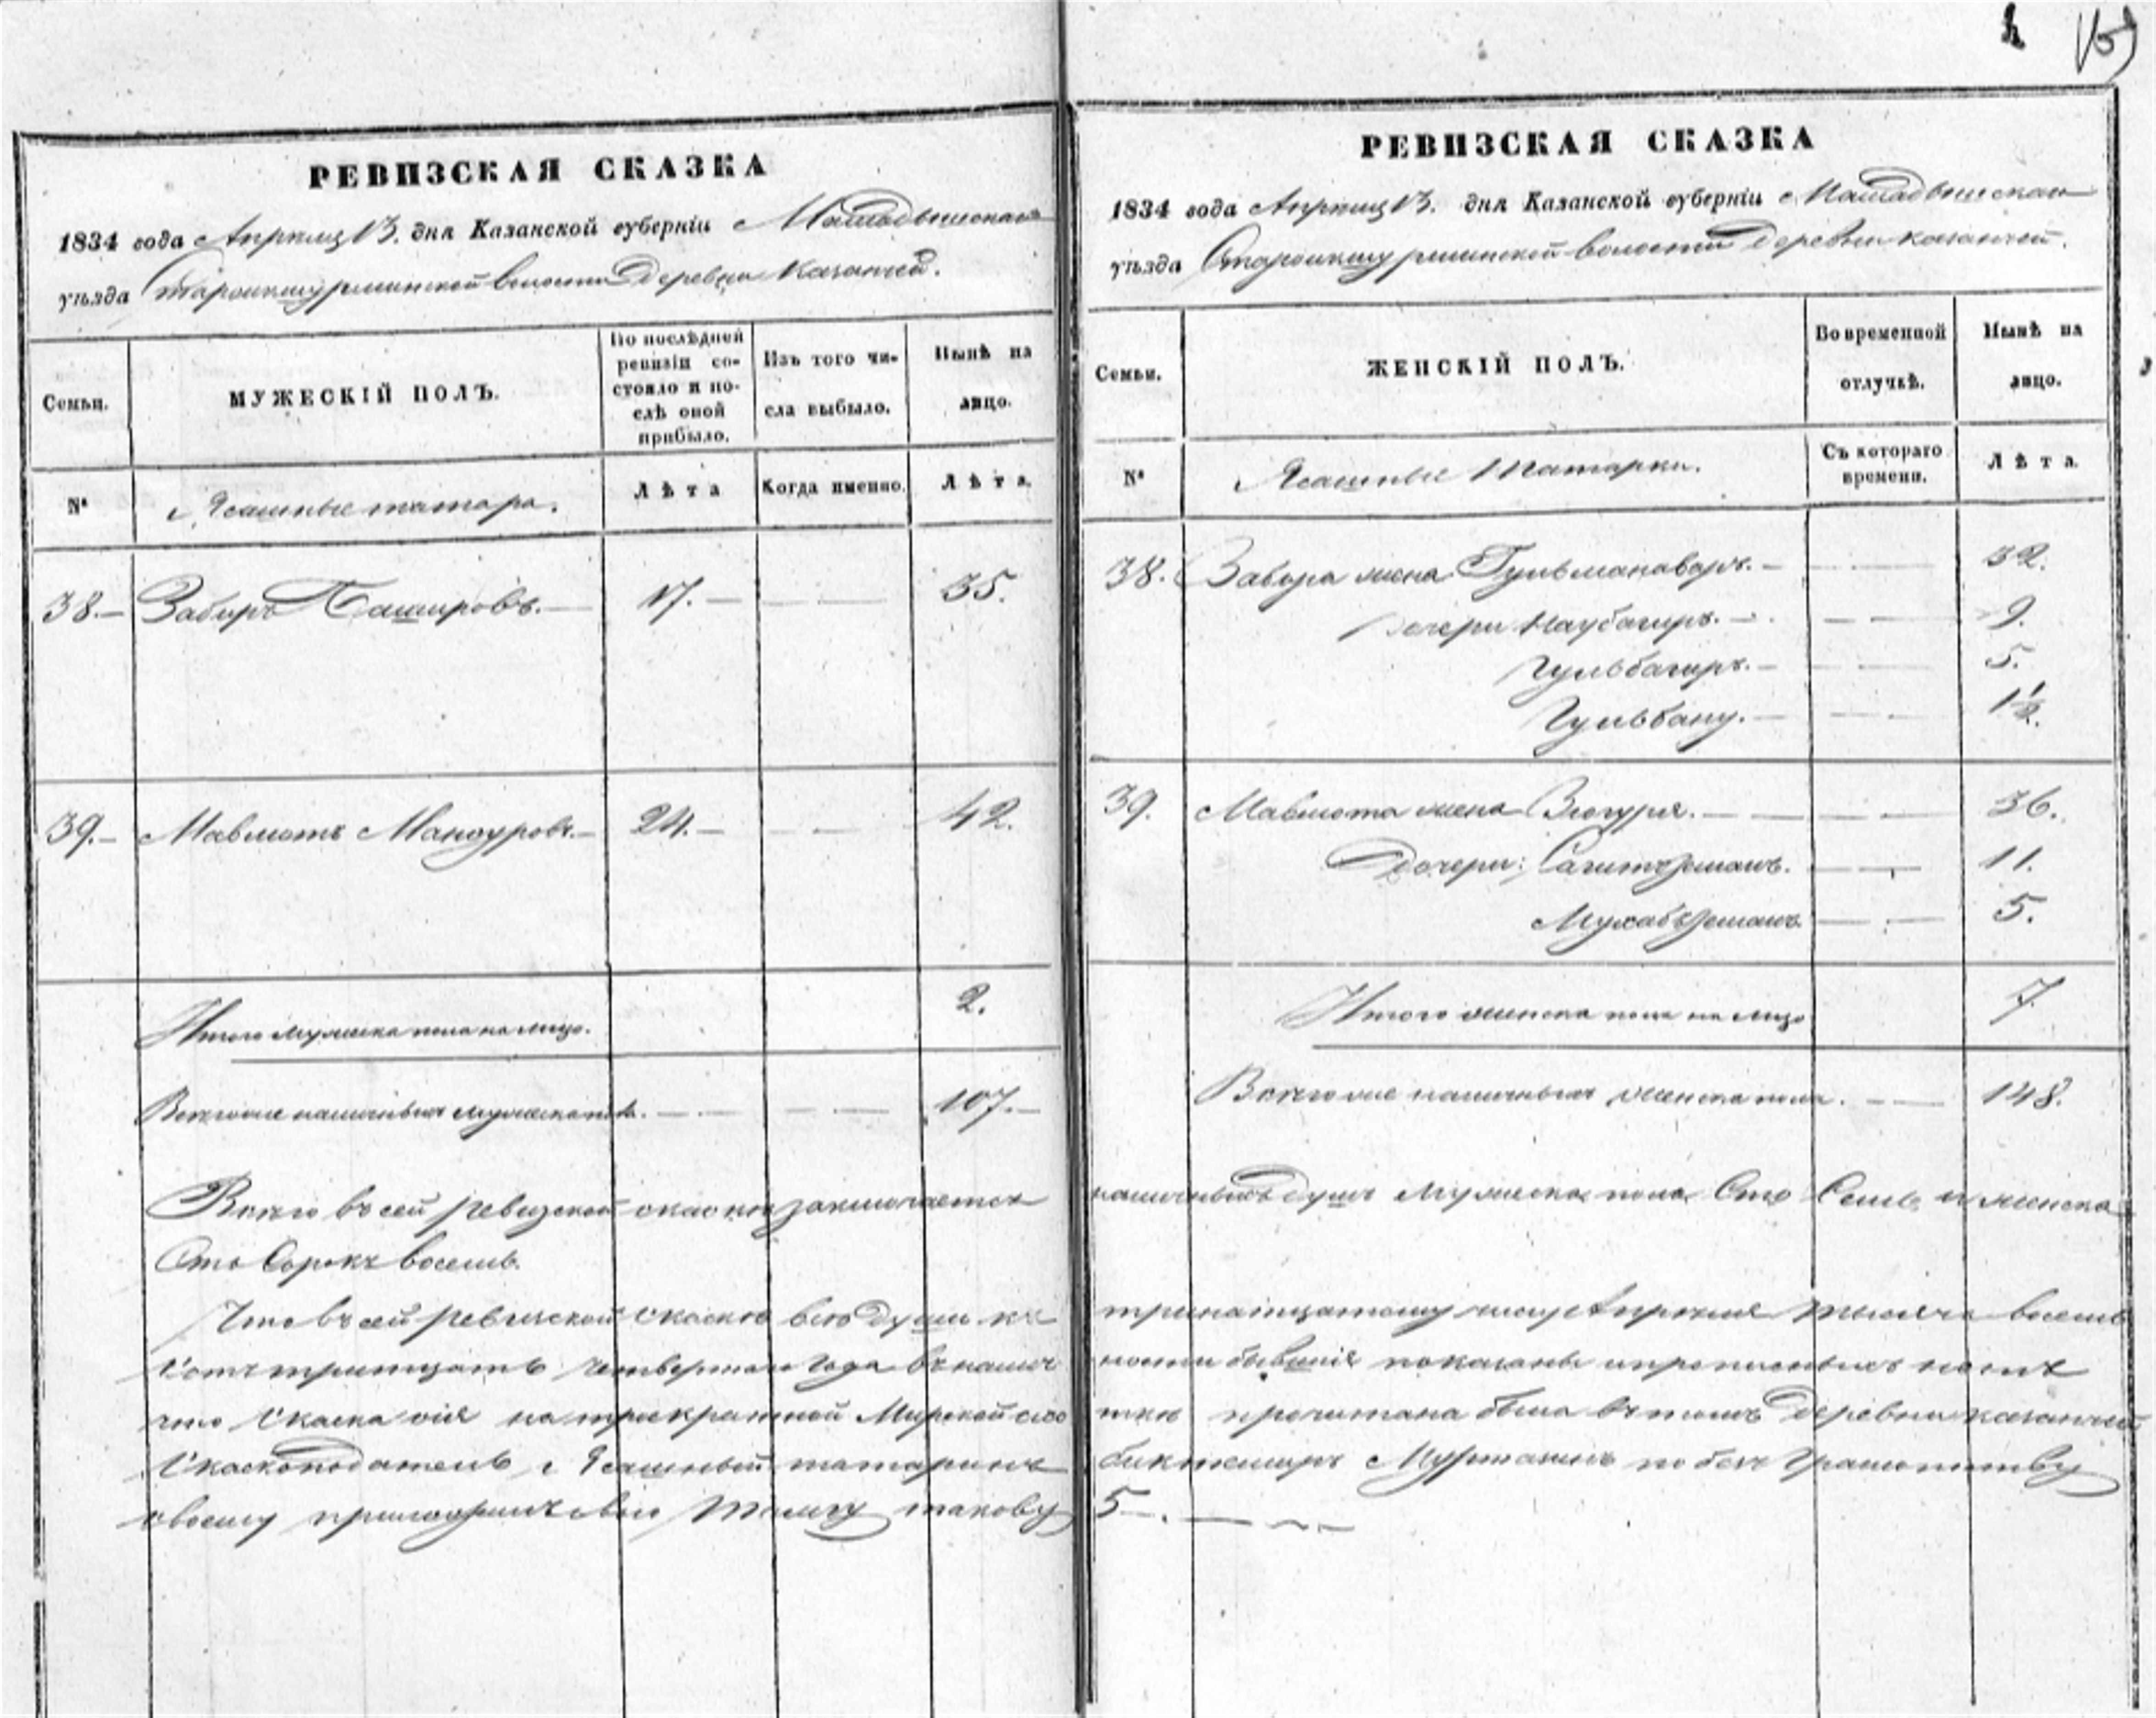 15
РЕВИЗСКАЯ СКАЗКА
1834 года Апреля 13. дня Казанской губерніи Мамадышскаго
уѣзда Старо волости деревни Казанчей.
Семьи.
МУЖЕСКІЙ ПОЛЪ.
По послѣдней ревизіи состояло и послѣ оной прибыло.
Изъ того числа выбыло.
Нынѣ на лицо.
№
Ясашные татара.
Лѣта
Когда именно.
Лѣта.
38. Забиръ Башировъ. 17. 35.
39. Мавлютъ Мансуровъ. 24. 42.
Итого мужеска пола на лицо. 2.
Всего же наличныхъ мужеска пола. 107.
РЕВИЗСКАЯ СКАЗКА
1834 года Апреля 13. дня Казанской губерніи Мамадышскаго
уѣзда Старо волости деревни Казанчей.
Семьи.
ЖЕНСКІЙ ПОЛЪ.
Во временной отлучкѣ.
Нынѣ на лицо.
№
Ясашные татарки.
Съ котораго времени.
Лѣта.
38. Забира жена Гульманаваръ. 32.
дочери Наубагиръ. 9.
Гульбагиръ. 5.
Гульбану. 1½.
39. Мавлюта жена Зюгуря. 36.
Дочери: 11.
5.
Итого женска пола на лицо 7.
Всего же наличныхъ женска пола. 148.
Всего въ сей ревизской скаске заключается наличныхъ душъ мужеска пола Сто Семь, и женска
Сто Сорокъ восемь.
Что въ сей ревизской скаске все души къ тринатцатому числу Апреля тысяча восемь
сотъ тритцать четвертаго года въ налич ности бывшія показаны и прописныхъ нетъ
что скаска сія на троекратной Мирской схо тке прочитана была въ томъ деревни Казанчей
Скаскоподатель Ясашный татаринъ биктемиръ по безъ грамотству
своему приложилъ свою тамгу такову 5